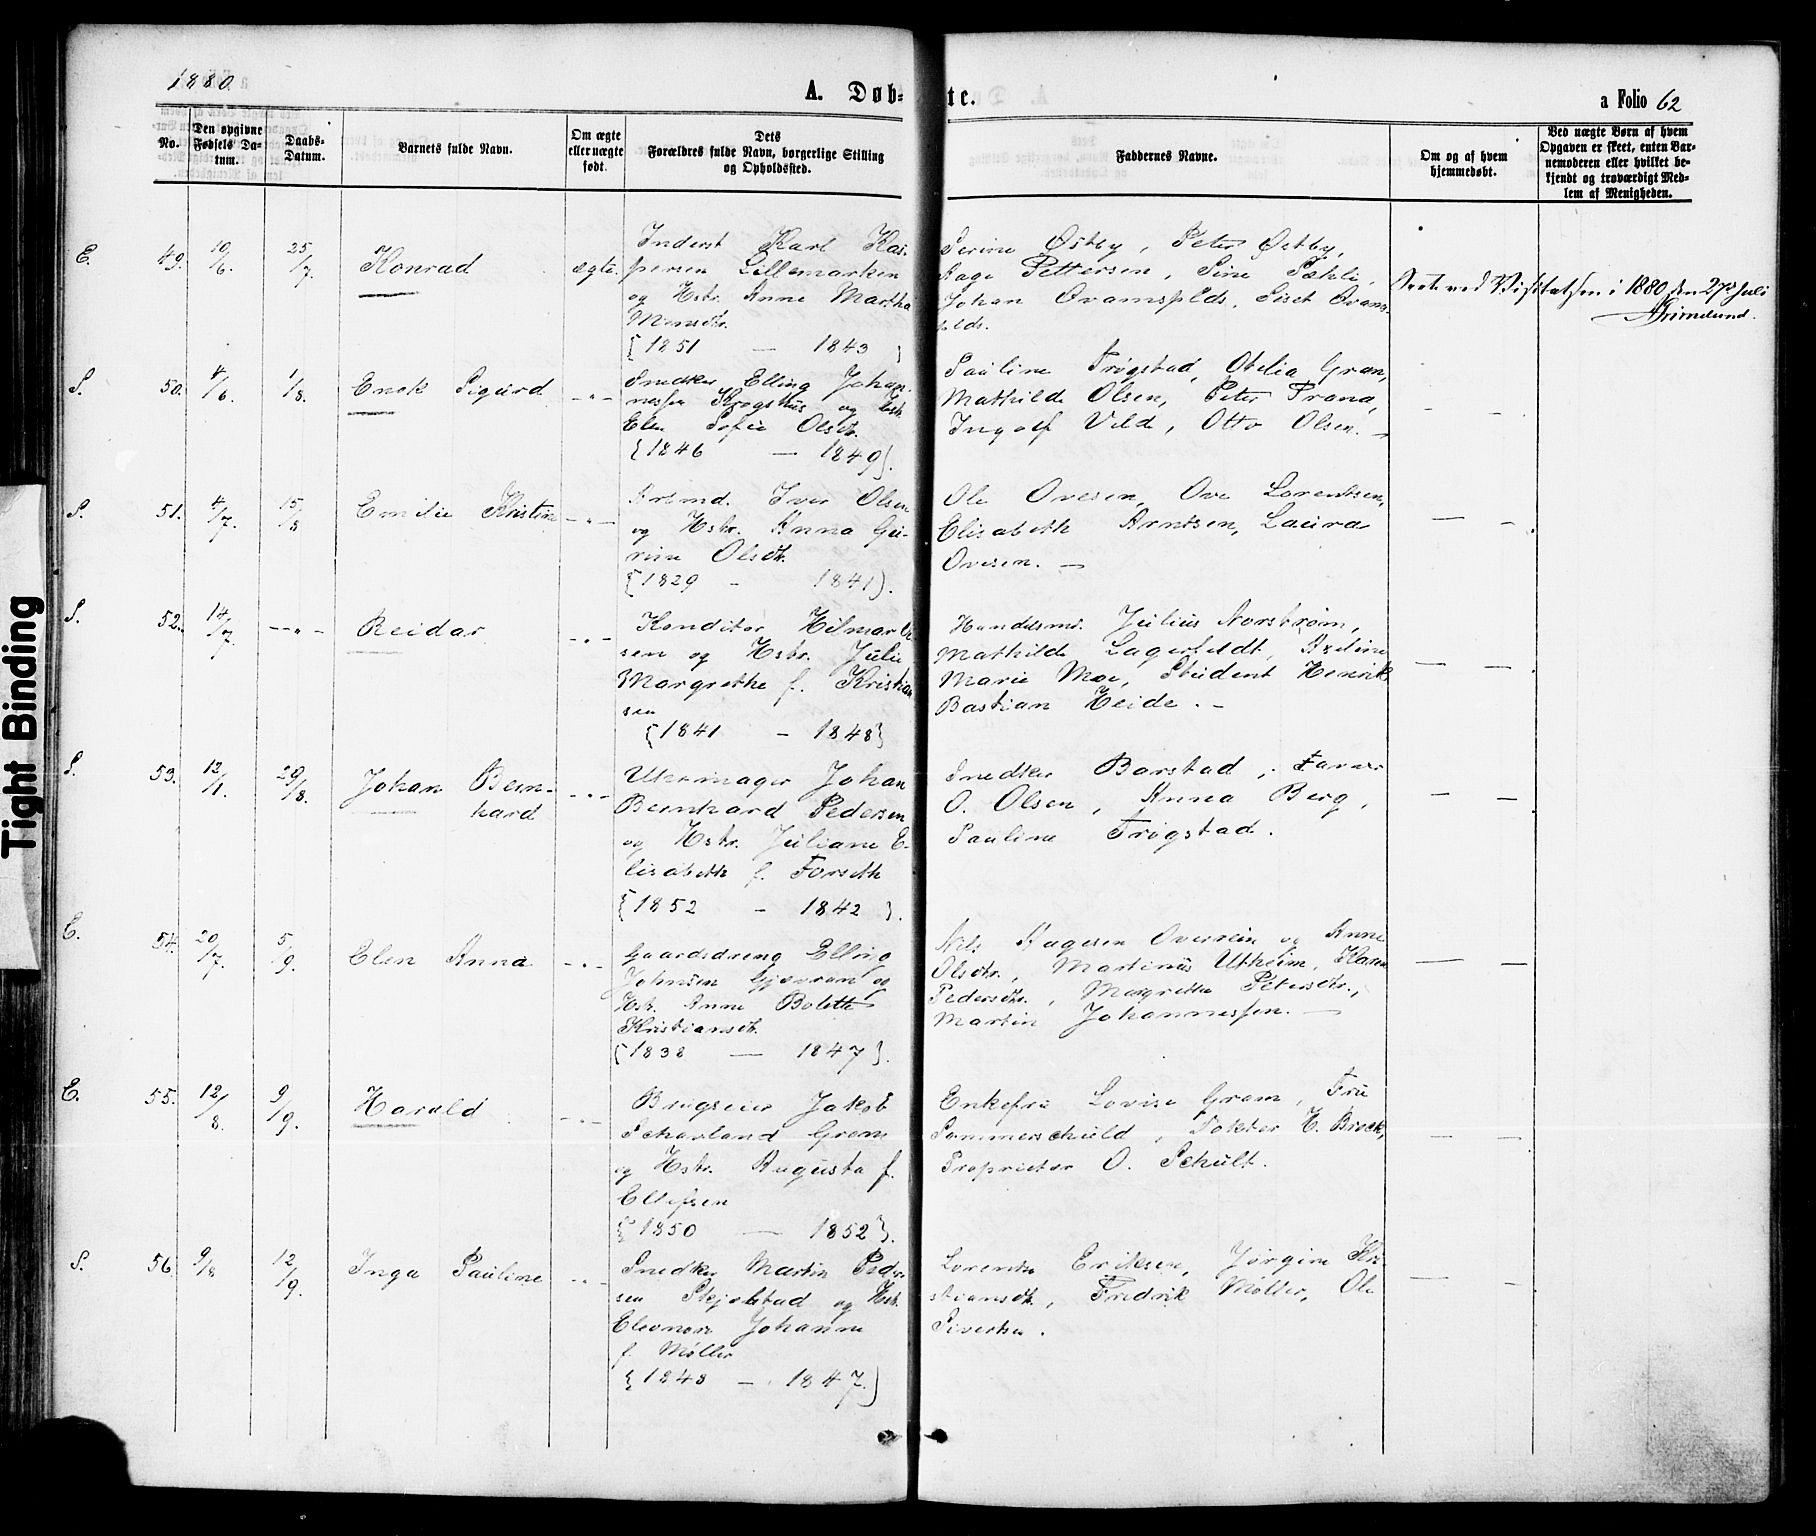 1880.
A. Døb-
te.
a Folio 62
No.
Den opgivne Fødsels Da-tum.
Daabs-Datum.
Barnets fulde Navn.
Om ægte eller uægte født.
Dets
Forældres fulde Navn, borgerlige Stilling
og Opholdssted.
Faddernes Navne.
Om og af hvem
hjemmedøbt.
Ved uægte Børn af hvem
Opgaven er skeet, enten Bar-
nemoderen eller hvilket be-
kjendt og troværdigt Med-
lem af Menigheden.
E. 49. 10/6. 25/7. Konrad ægte.
Inderst Karl Kas-
persen Lillemarken
og Hstr. Anne Martha
Monsdtr.
[1851 — 1843}
Serine Østby, Peter Østby,
Aage Pettersen, Sine
Johan Ovamsflds, Siset Ovams-
flds.
Seet ved Visitatsen i 1880 den 27de Juli
AGrimelund.
S. 50. 4/6. 1/8. Enok Sigurd -"-
Snedker Elling Johan-
nessen Krogshus og Hstr.
Elen Sofie Olsdtr.
{1846 — 1849}.
Pauline Frøgstad, Otelia Gran,
Mathilde Olsen, Peter Trana,
Ingolf Vild, Otto Olsen. —
- -
S. 51. 4/7. 15/8 Emilie Kristine -"-
Arbmd. Iver Olsen
og Hstr. Anna Gu-
rine Olsdtr.
{1829 - 1841).
Ole Ovesen, Ove Lorentsen,
Elisabeth Arntsen, Laura
Ovesen. —
— -
S. 52. 14/7. -"- Reidar -"-
Konditor Hilmar Ol-
sen og Hstr. Julie
Margrethe f. Kristian
sen
{1841 - 1848}
Handelsmd. Julius Norstrøm,
Mathilde Lagerfeldt,
Marie Moe, Student Henrik
Bastian Heide. -
— -
S. 53. 12/1. 29/8. Johan Bern-
hard -"-
Uhrmager Johan
Bernhard Pedersen
og Hstr. Juliane E-
lisabeth f. Forseth
{1852 - 1842}.
Snedker Barstad, Farver
O. Olsen, Anna Berg,
Pauline Frøgstad.
— -
E. 54. 20/7. 5/9. Elen Anna -"-
Gaardsdreng Elling
Johnsen Gjævran og
Hstr. Anne Bolette
Kristiansdtr.
{1838 — 1847}.
Nils Aagesen Overrein og Anne
Olsdtr., Martinus Utheim, Karen
Pedersdtr., Margrethe Petersdtr.,
Martin Johannessen. —
— -
E. 55. 12/8. 9/9. Harald -"-
Brugseier Jakob
Scharland Gram
og Hstr. Augusta f.
Ellefsen
{1850 — 1852}.
Enkefru Lovise Gram, Fru
Sommerschuld, Doktor H. Brock,
Proprietær O. Schult.
— -
S. 56. 9/8 12/9. Inga Pauline -"-
Snedker Martin Peder-
sen Skjølstad og Hstr.
Eleonora Johanne
f. Møller
{1848 — 1847.)
Lorentse Eriksen, Jørgine Kri-
stiansdtr., Fredrik Møller, Ole
Sivertsen.
— -
Tight Binding